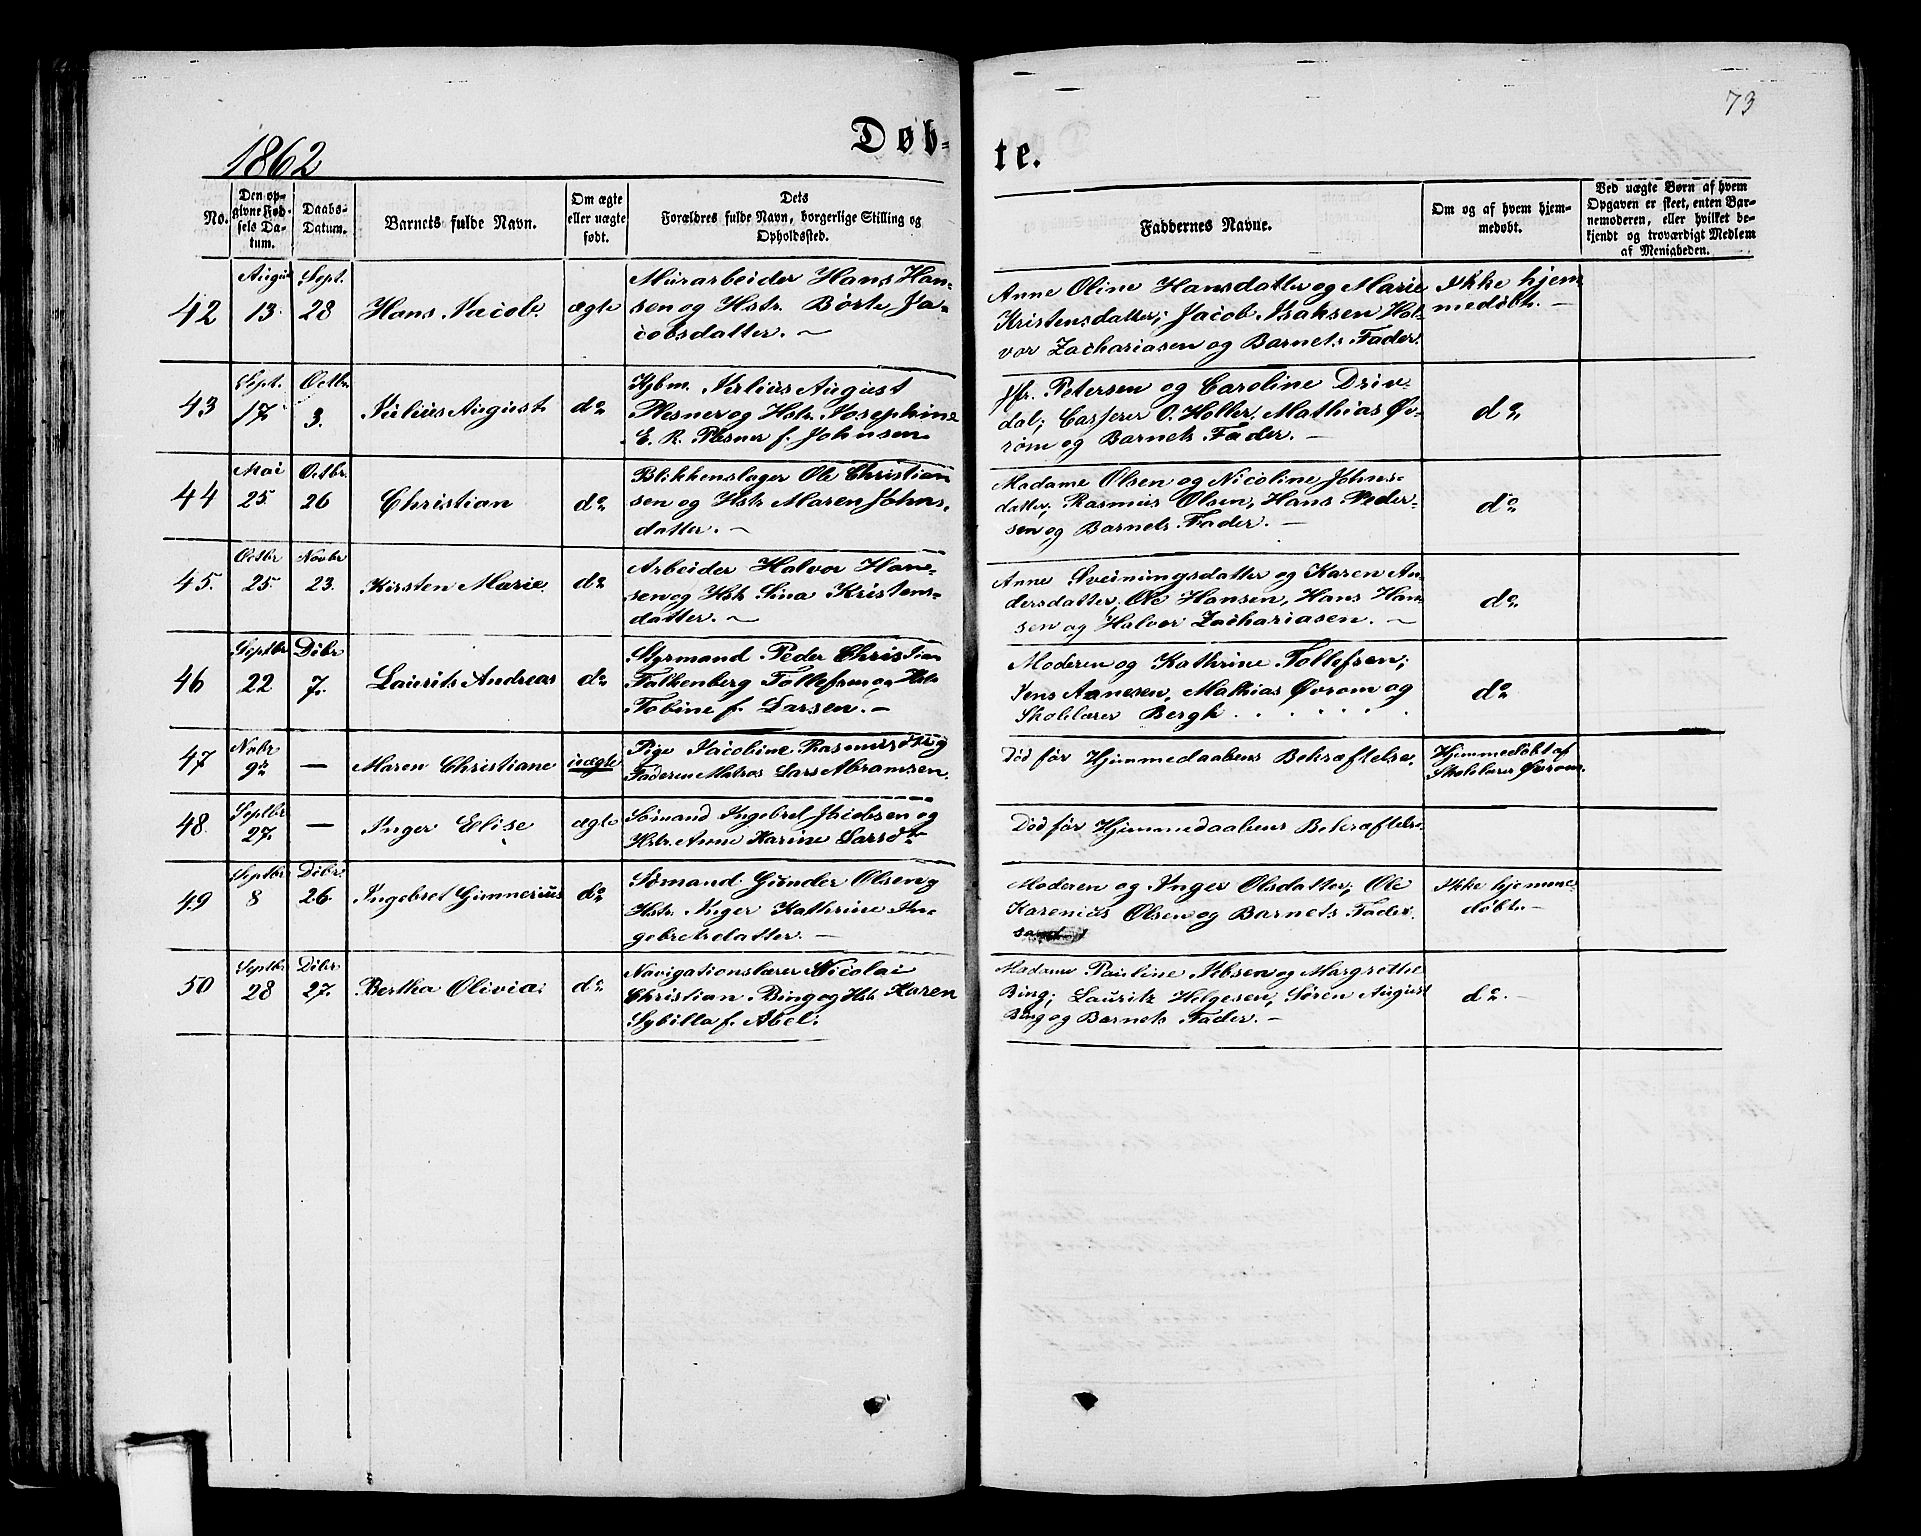 73
1862
Døb-
te.
No.
Den op-
givne Fød-
sels Da-
tum.
Daabs-
Datum.
Barnets fulde Navn.
Om ægte
eller uægte
født.
Dets
Forældres fulde Navn, borgerlige Stilling og
Opholdssted.
Faddernes Navne.
Om og af hvem hjem-
medøbt.
Ved uægte Børn af hvem
Opgaven er skeet, enten Bar-
nemoderen, eller hvilket be-
kjendt og troværdigt Medlem
af Menigheden.
42
August
13.
Sept.
28
Hans Jacob.
ægte
Murarbeider Hans Han-
sen og Hstr. Børte Ja-
cobsdatter. ~
Anne Oline Hansdatter og Marie
Kristensdatter; Jacob Isaksen Hal-
vor Zachariasen og Barnets Fader.
Ikke hjem
medøbt. —
43
Sept.
17.
Octbr.
3.
Julius August.
do
Kjbm. Julius August
Plesner og Hstr. Josephine
E. R. Plesner f. Johnsen
Jfr. Petersen og Caroline Driv-
dal; Casserer O. Holler, Mathias Øv-
rom og Barnets Fader. —
do
44
Mai
25.
Octbr.
26
Christian
do
Blikkenslager Ole Christian
sen og Hstr. Maren Johns-
datter. ~
Madame Olsen og Nicoline Johns-
datter, Rasmus Olsen, Hans Peder-
sen og Barnets Fader. —
do
45.
Octbr
25.
Novbr
23.
Kirsten Marie.
do
Arbeider Halvor Han-
sen og Hstr. Sina Kristens-
datter. ~
Anne Sveinungsdatter og Karen An-
dersdatter, Ole Hansen, Hans Han-
sen og Halvor Zachariasen. ~
do
46
Septbr
22
Dcbr
7.
Laurits Andreas
do
Styrmand Peder Christian
Falkenberg Tollefsen og Hstr
Tobine f. Larsen. —
Moderen og Kathrine Tollefsen;
Jens Aanesen, Mathias Øvrom og
Skolelærer Bergh . . . . . .
do
47
Novbr
9de
—
Maren Christiane
uægte
Pige Jacobine Rasmusdtr og
Faderen Matros Lars Abramsen.
Død før Hjemmedaabens Bekræftelse.
Hjemmedøbt af
Skolelærer Øvrom.
48.
Septbr
27.
—
Inger Elise
ægte
Sømand Ingebret Jacobsen og
Hstr. Anne Karine Larsdtr
Død før Hjemmedaabens Bekræftelse
49
Septbr
8
Dcbr.
26.
Ingebret Gunnerius
do
Sømand Gunder Olsen og
Hstr. Inger Kathrine In-
gebretsdatter. —
Moderen og Inger Olsdatter; Ole
Karenius Olsen og Barnets Fader.
Ikke hjemme-
døbt. —
50
Septbr
28
Dcbr
27.
Bertha Olivia.
do
Navigationslærer Nicolai
Christian Bing og Hstr. Karen
Sybilla f. Abel.
Madame Pauline Ibsen og Margrethe
Bing; Lauritz Helgesen, Søren August
Bing og Barnets Fader. —
do. —